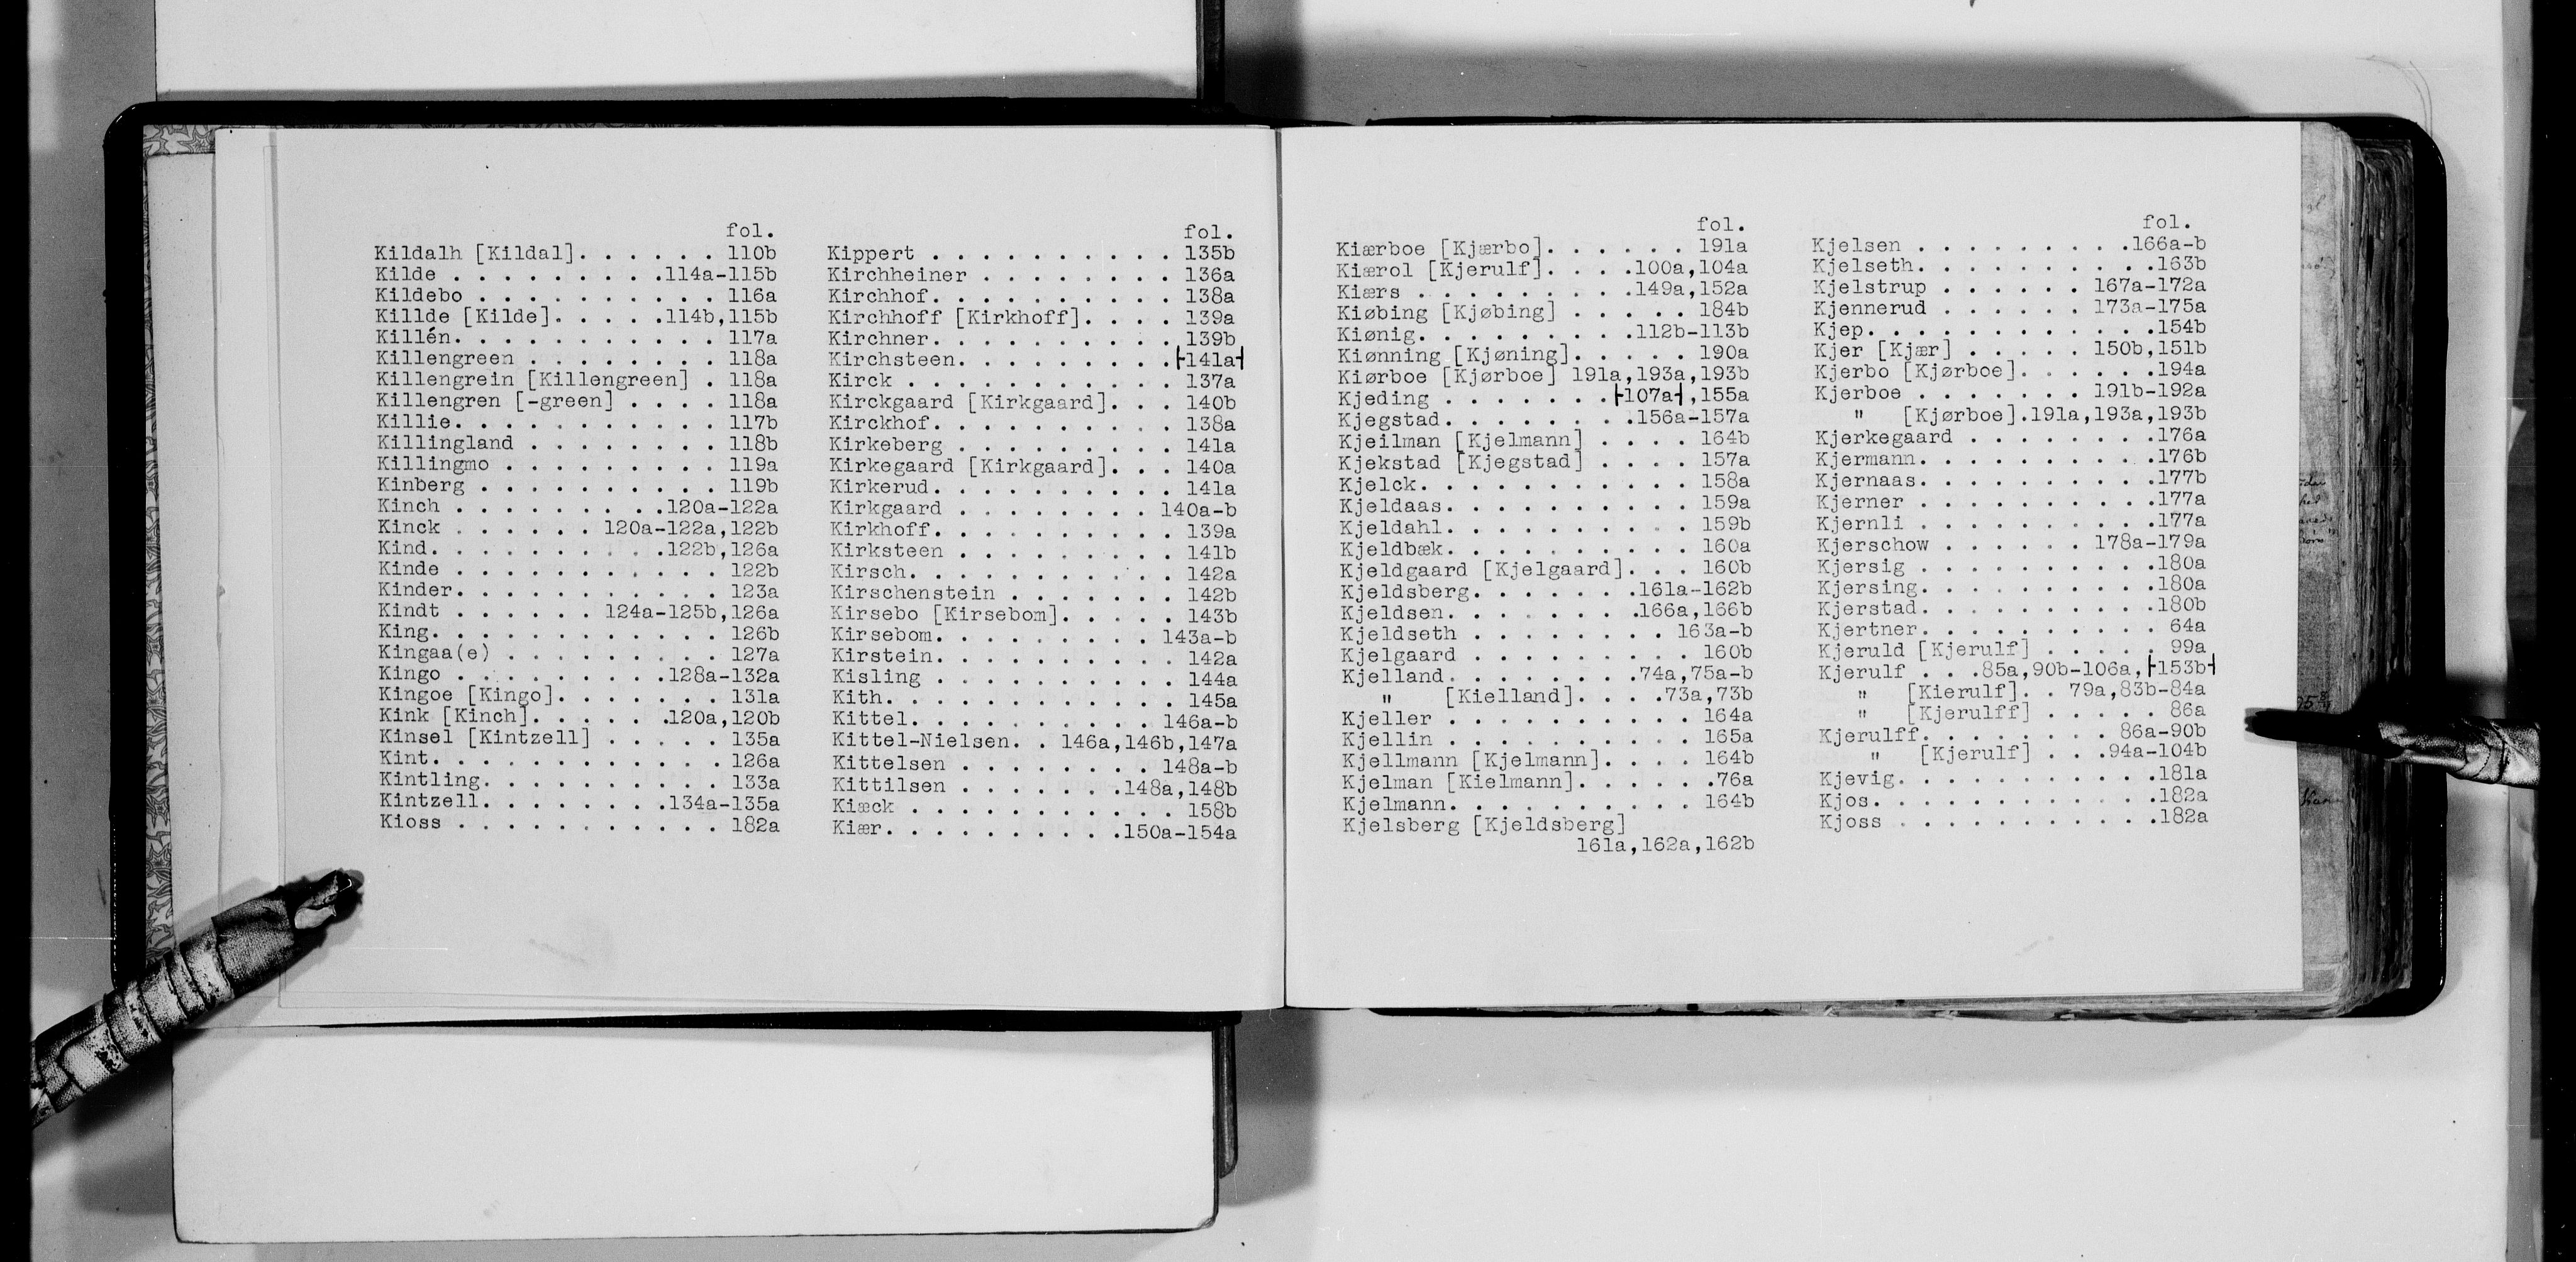 fol.
Kildalh [Kildal]. . . . . . 110b
Kilde . . . . . . . . .114a-115b
Kildebo . . . . . . . . . . 116a
Killde [Kilde]. . . . .114b,115b
Killén. . . . . . . . . . . 117a
Killengreen . . . . . . . . 118a
Killengrein [Killengreen] . 118a
Killengren [-green] . . . . 118a
Killie. . . . . . . . . . . 117b
Killingland . . . . . . . . 118b
Killingmo . . . . . . . . . 119a
Kinberg . . . . . . . . . . 119b
Kinch . . . . . . . . .120a-122a
Kinck . . . . . . 120a-122a,122b
Kind. . . . . . . . . .122b,126a
Kinde . . . . . . . . . . . 122b
Kinder. . . . . . . . . . . 123a
Kindt . . . . . . 124a-125b,126a
King. . . . . . . . . . . . 126b
Kingaa(e) . . . . . . . . . 127a
Kingo . . . . . . . . .128a-132a
Kingoe [Kingo]. . . . . . . 131a
Kink [Kinch]. . . . . .120a,120b
Kinsel [Kintzell] . . . . . 135a
Kint. . . . . . . . . . . . 126a
Kintling. . . . . . . . . . 133a
Kintzell. . . . . . . .134a-135a
Kioss . . . . . . . . . . . 182a
fol.
Kippert . . . . . . . . . . 135b
Kirchheiner . . . . . . . . 136a
Kirchhof. . . . . . . . . . 138a
Kirchhoff [Kirkhoff]. . . . 139a
Kirchner. . . . . . . . . . 139b
Kirchsteen. . . . . . . . .├141a┤
Kirck . . . . . . . . . . . 137a
Kirckgaard [Kirkgaard]. . . 140b
Kirckhof. . . . . . . . . . 138a
Kirkeberg . . . . . . . . . 141a
Kirkegaard [Kirkgaard]. . . 140a
Kirkerud. . . . . . . . . . 141a
Kirkgaard . . . . . . . . 140a-b
Kirkhoff. . . . . . . . . . 139a
Kirksteen . . . . . . . . . 141b
Kirsch. . . . . . . . . . . 142a
Kirschenstein . . . . . . . 142b
Kirsebo [Kirsebom]. . . . . 143b
Kirsebom. . . . . . . . . 143a-b
Kirstein. . . . . . . . . . 142a
Kisling . . . . . . . . . . 144a
Kith. . . . . . . . . . . . 145a
Kittel. . . . . . . . . . 146a-b
Kittel-Nielsen. . 146a,146b,147a
Kittelsen . . . . . . . . 148a-b
Kittilsen . . . . . . .148a,148b
Kiæck . . . . . . . . . . . 158b
Kiær. . . . . . . . . .150a-154a
fol.
Kiærboe [Kjærbo]. . . . . . 191a
Kiærol [Kjerulf]. . . .100a,104a
Kiærs . . . . . . . . .149a,152a
Kiøbing [Kjøbing] . . . . . 184b
Kiønig. . . . . . . . .112b-113b
Kiønning [Kjøning]. . . . . 190a
Kiørboe [Kjørboe] 191a,193a,193b
Kjeding . . . . . . .├107a┤,155a
Kjegstad. . . . . . . .156a-157a
Kjeilman [Kjelmann] . . . . 164b
Kjekstad [Kjegstad] . . . . 157a
Kjelck. . . . . . . . . . . 158a
Kjeldaas. . . . . . . . . . 159a
Kjeldahl. . . . . . . . . . 159b
Kjeldbæk. . . . . . . . . . 160a
Kjeldgaard [Kjelgaard]. . . 160b
Kjeldsberg. . . . . . .161a-162b
Kjeldsen. . . . . . . .166a,166b
Kjeldseth . . . . . . . . 163a-b
Kjelgaard . . . . . . . . . 160b
Kjelland. . . . . . . .74a,75a-b
" [Kielland]. . . .73a,73b
Kjeller . . . . . . . . . . 164a
Kjellin . . . . . . . . . . 165a
Kjellmann [Kjelmann]. . . . 164b
Kjelman [Kielmann]. . . . . .76a
Kjelmann. . . . . . . . . . 164b
Kjelsberg [Kjeldsberg]
161a,162a,162b
fol.
Kjelsen . . . . . . . . .166a-b
Kjelseth. . . . . . . . . .163b
Kjelstrup . . . . . . 167a-172a
Kjennerud . . . . . . 173a-175a
Kjep. . . . . . . . . . . .154b
Kjer [Kjær] . . . . . 150b,151b
Kjerbo [Kjørboe]. . . . . .194a
Kjerboe . . . . . . . 191b-192a
" [Kjørboe].191a,193a,193b
Kjerkegaard . . . . . . . .176a
Kjermann. . . . . . . . . .176b
Kjernaas. . . . . . . . . .177b
Kjerner . . . . . . . . . .177a
Kjernli . . . . . . . . . .177a
Kjerschow . . . . . . 178a-179a
Kjersig . . . . . . . . . .180a
Kjersing. . . . . . . . . .180a
Kjerstad. . . . . . . . . .180b
Kjertner. . . . . . . . . . 64a
Kjeruld [Kjerulf] . . . . . 99a
Kjerulf . . .85a,90b-106a,├153b┤
" [Kierulf]. . 79a,83b-84a
" [Kjerulff] . . . . . 86a
Kjerulff. . . . . . . . 86a-90b
" [Kjerulf] . . .94a-104b
Kjevig. . . . . . . . . . .181a
Kjos. . . . . . . . . . . .182a
Kjoss . . . . . . . . . . .182a